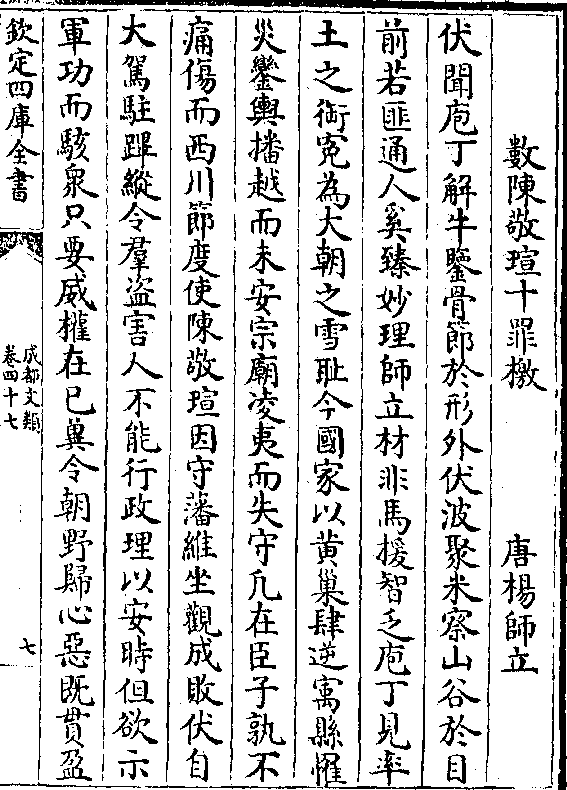 數陳敬瑄十罪檄　唐楊師立
伏聞庖丁解牛鑒骨節於形外伏波聚米察山谷於目
前若匪通人奚臻妙理師立材非馬援智乏庖丁見率
土之銜寃為大朝之雪恥今國家以黄巢肆逆寓縣罹
災鑾輿播越而未安宗廟凌夷而失守凡在臣子孰不
痛傷而西川節度使陳敬瑄因守藩維坐觀成敗伏自
大駕駐蹕縱令羣盗害人不能行政理以安時但欲示
軍功而駭衆只要威權在已兾令朝野歸心惡既貫盈
欽定四庫全書
成都文類
卷四十七
七